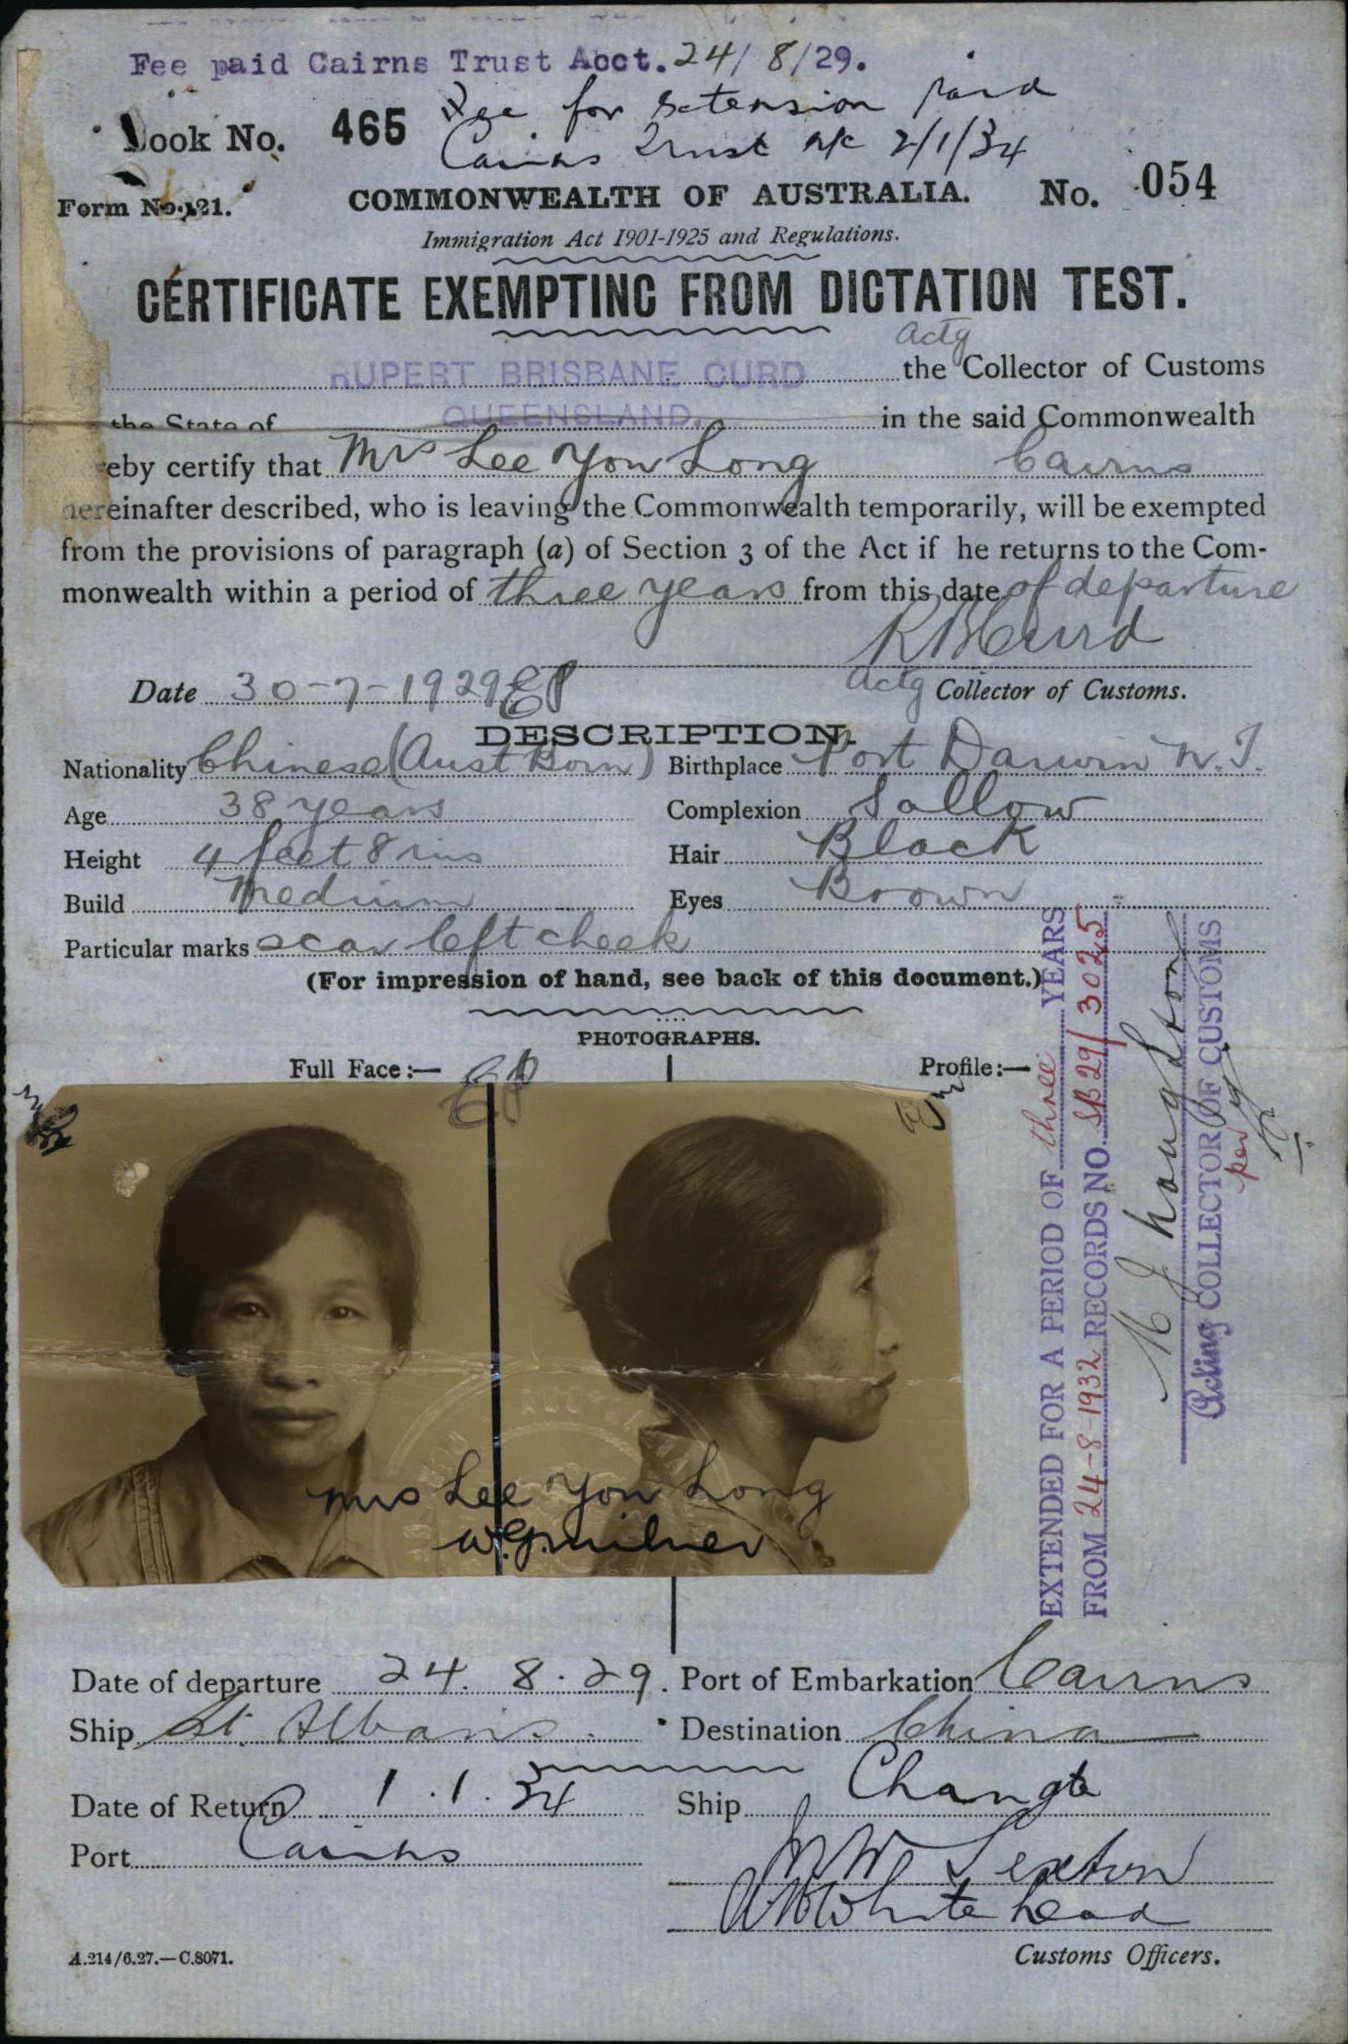 Fee paid Cairns Trust Acct. 24/8/29.
Fee for Extension paid
Book No. 465
Cairns Trust a/c 2/1/34
Form No. 121.
COMMONWEALTH OF AUSTRALIA. No. 054
Immigration Act 1901-1925 and Regulations.
CERTIFICATE EXEMPTING FROM DICTATION TEST.
Actg
RUPERT BRISBANE CURD the Collector of Customs
the State of QUEENSLAND. in the said Commonwealth
eby certify that Mrs Lee You Long Cairns
hereinafter described, who is leaving the Commonwealth temporarily, will be exempted
from the provisions of paragraph (a) of Section 3 of the Act if he returns to the Com-
monwealth within a period of three years from this date of departure
R B Curd
Date 30-7-1929 Actg Collector of Customs.
DESCRIPTION.
Nationality Chinese (Aust Born) Birthplace Port Darwin N.T.
Age 38 years Complexion Sallow
Height 4 feet 8 ins Hair Black
Build Medium Eyes Brown
Particular marks scar left cheek
(For impression of hand, see back of this document.)
PHOTOGRAPHS.
Full Face:— Profile:—
Mrs Lee You Long
W.G. Milner
EXTENDED FOR A PERIOD OF three YEARS
FROM 24-8-1932 RECORDS NO. SB29/3025
Acting COLLECTOR OF CUSTOMS
per
Date of departure 24.8.29. Port of Embarkation Cairns
Ship St. Albans. Destination China
Date of Return 1.1.34 Ship Changte
Port Cairns
Sexton
Whitehead
A.214/6.27.—C.8071. Customs Officers.